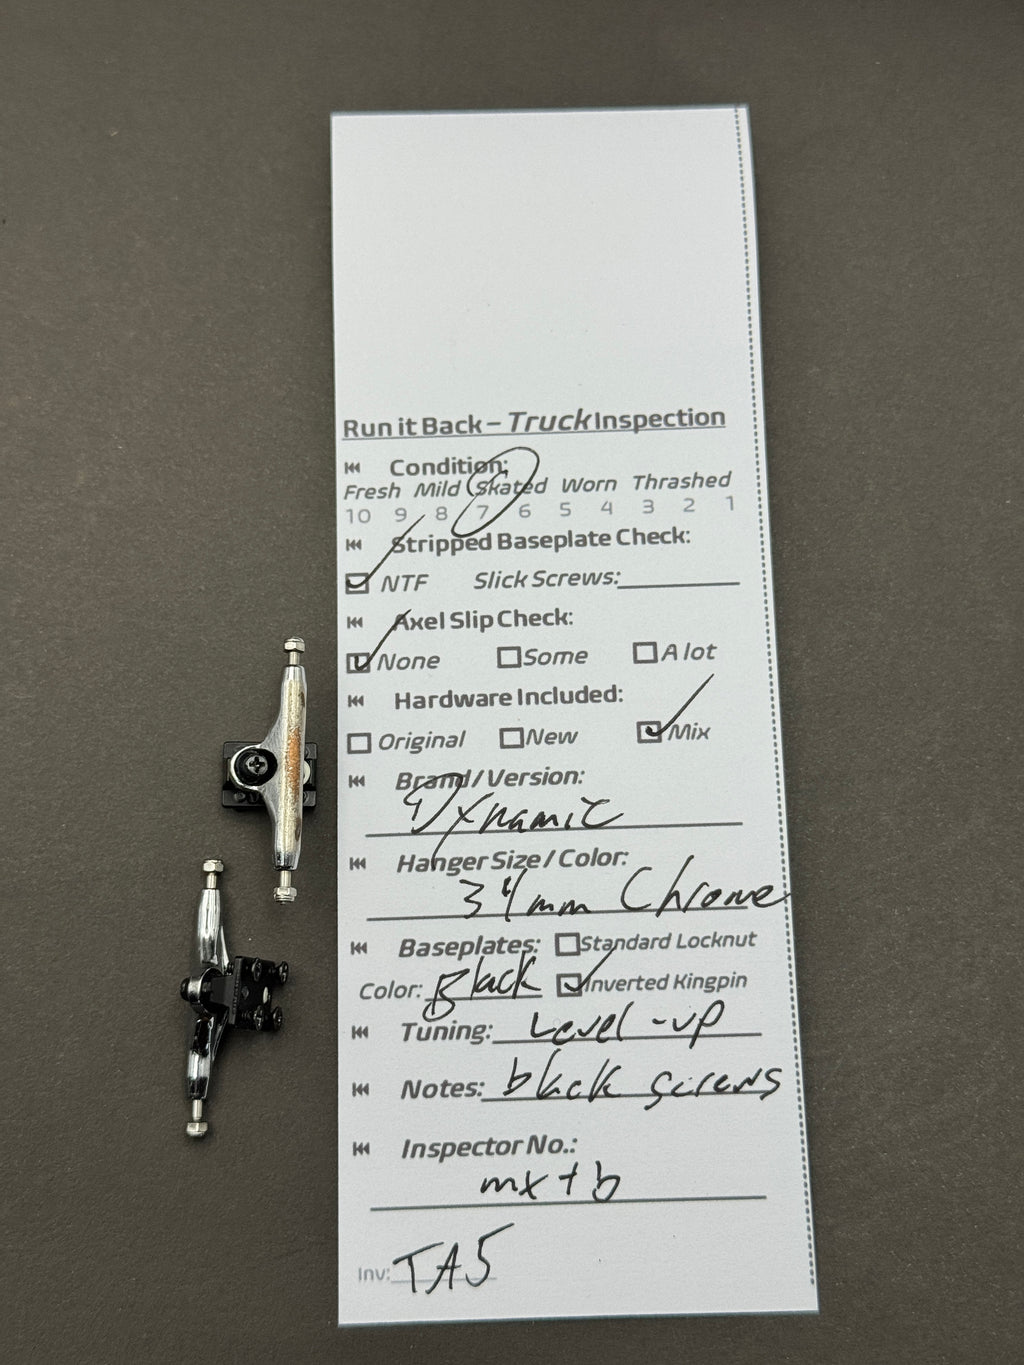 Run it Back – Truck Inspection
Condition:
Fresh Mild Skated Worn Thrashed
10 9 8 7 6 5 4 3 2 1
Stripped Baseplate Check:
NTF Slick Screws:
Axel Slip Check:
None Some A lot
Hardware Included:
Original New Mix
Brand/Version:
Dynamic
Hanger Size / Color:
34mm Chrome
Baseplates: Standard Locknut
Color: Black Inverted Kingpin
Tuning: Level-up
Notes: black screws
Inspector No.:
mx+b
Inv: TA5